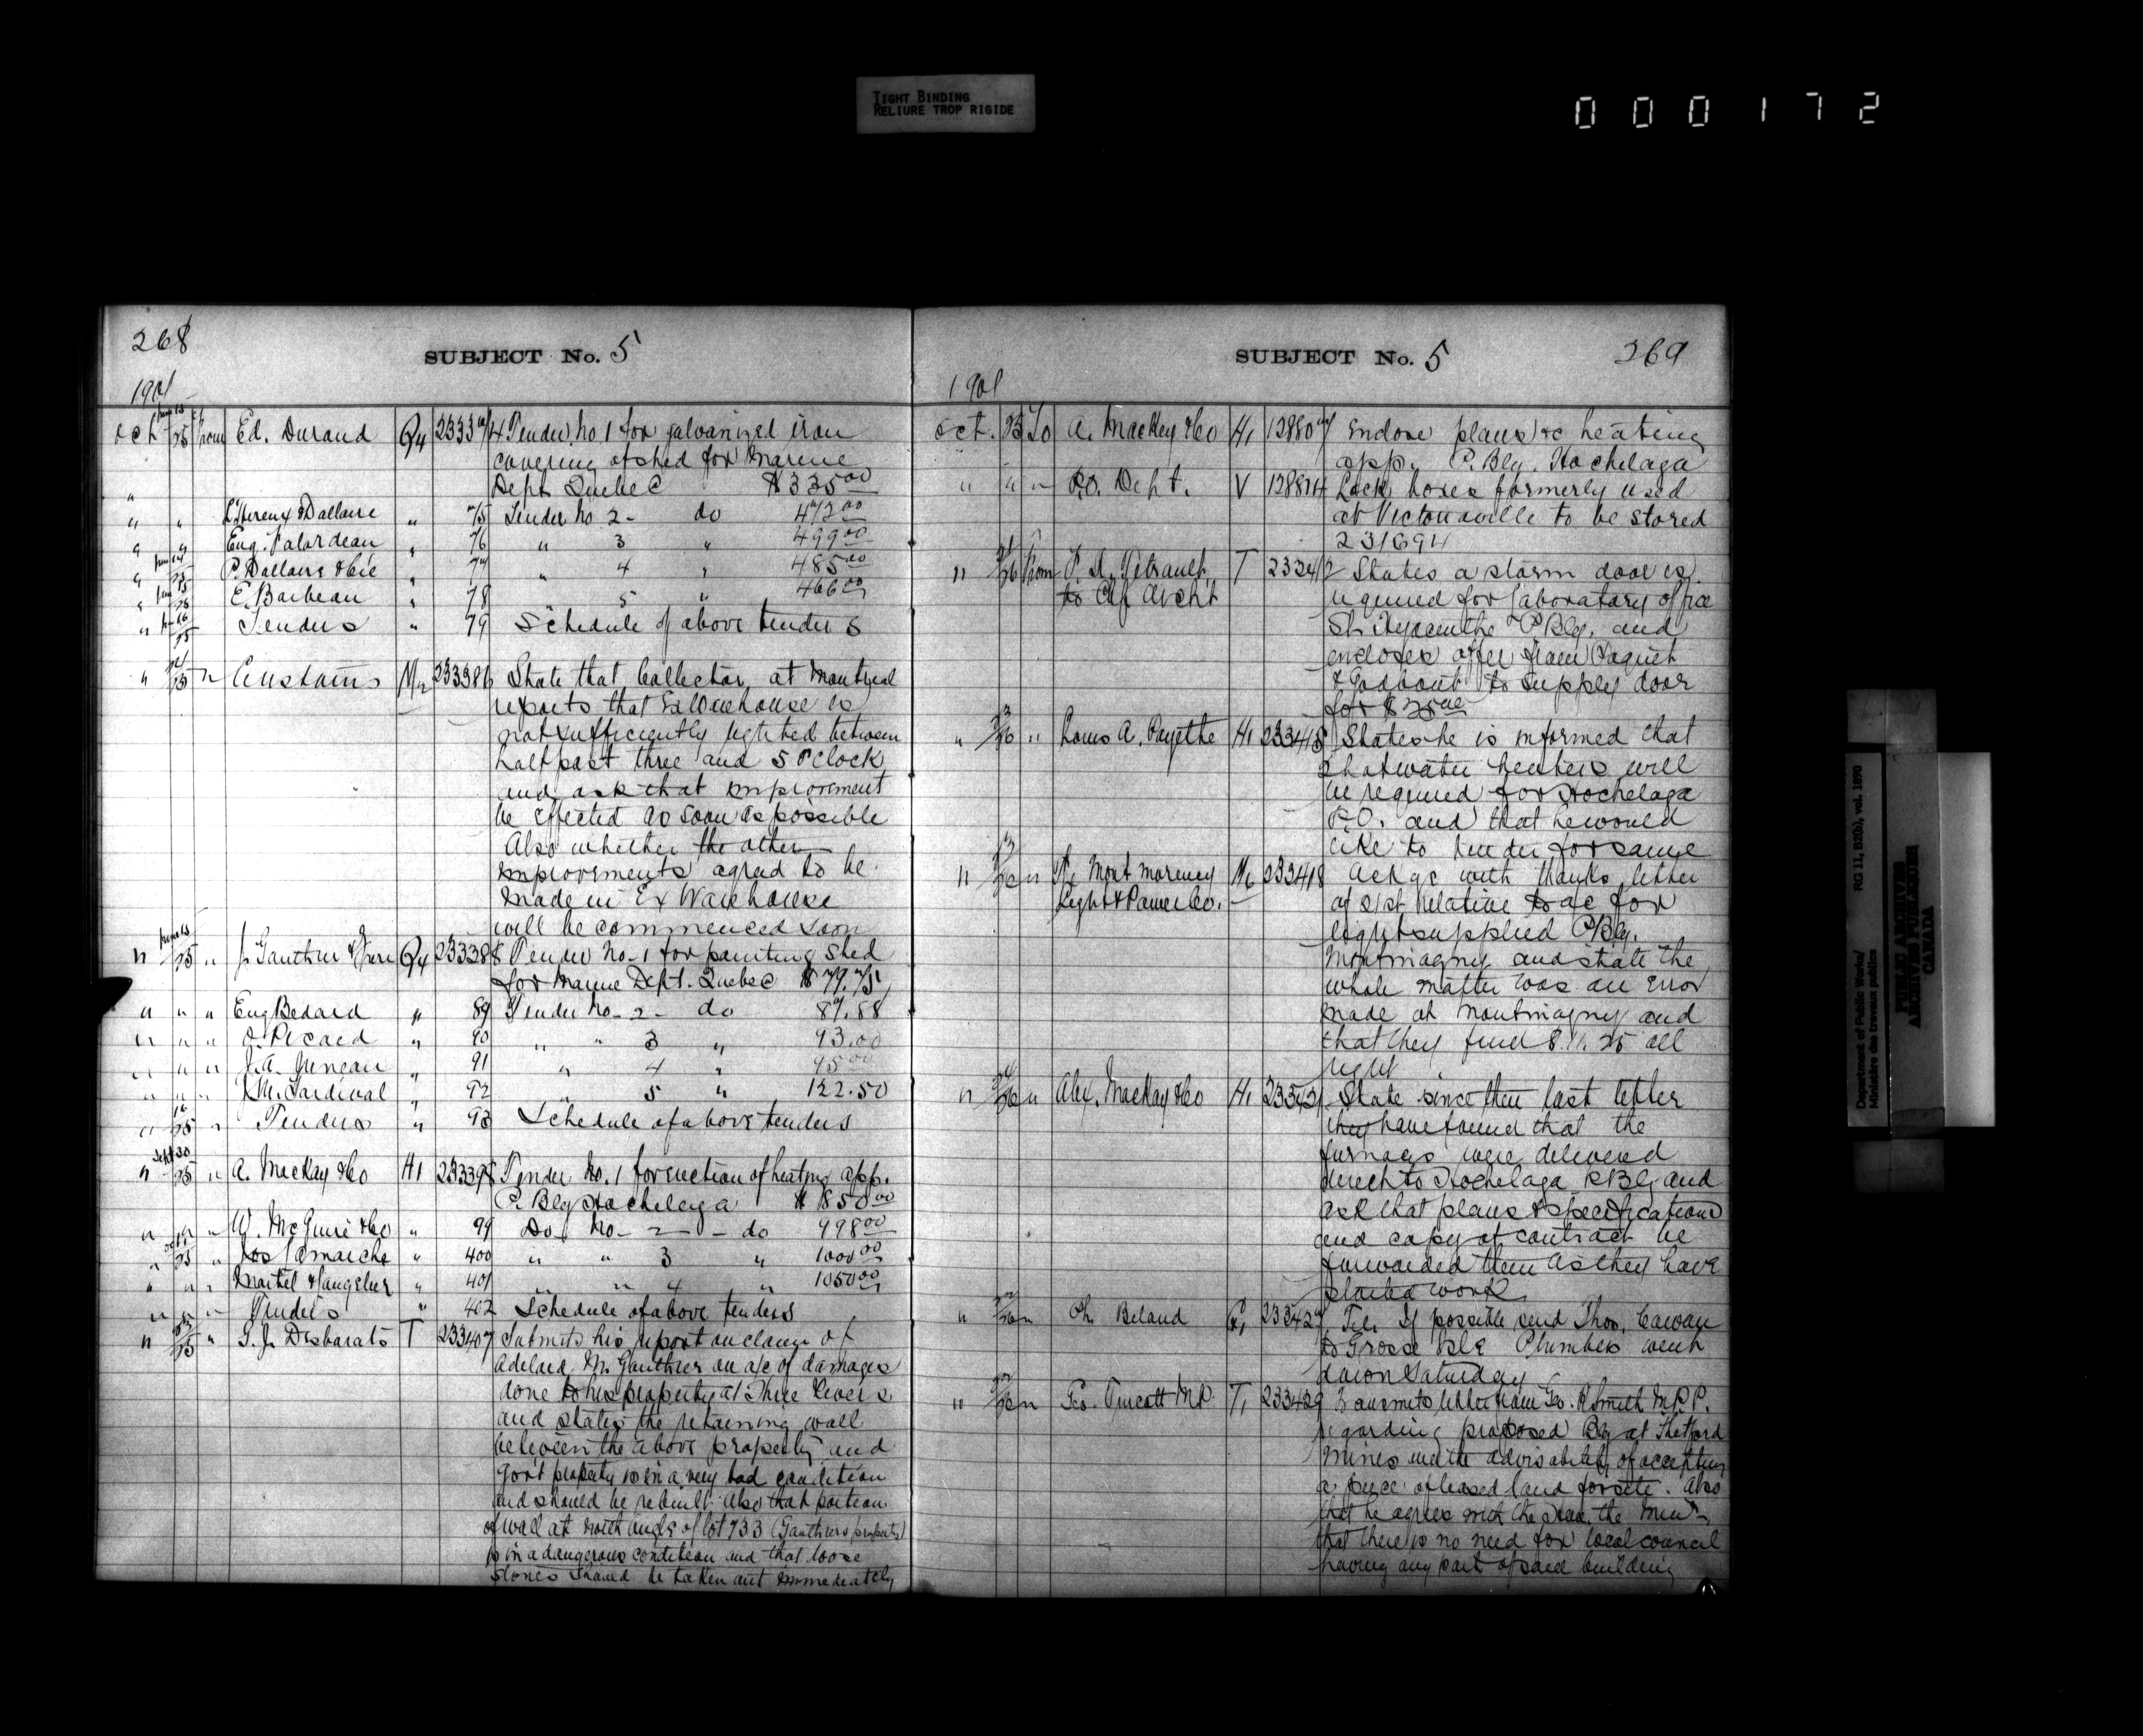 TIGHT BINDING
RELIURE TROP RIGIDE
000172
268
SUBJECT No. 5
1901
Oct 25 from Ed. Durand Q4 233374 Tender No 1 for galvanized iron
covering of shed for Marine
Dept Quebec $335.00
" " L'Hereux & Dallaire " 75 Tender No 2 - do 472.00
" " Eug. Falardeau " 76 " 3 " 499.00
" P. Dallaire & Cie " 77 " 4 " 485.00
" E. Barbeau " 78 " 5 " 466.00
" Tenders " 79 Schedule of above tenders
" 24/25 " Customs 233386 State that Collector at Montreal
reports that Ex Warehouse is
not sufficiently lighted between
half past three and 5 O'Clock
and ask that improvement
be effected as soon as possible
Also whether the other
improvements agreed to be
made in Ex Warehouse
will be commenced soon
" 25 " J. Gauthier & frere Q4 233388 Tender No. 1 for painting shed
for Marine Dept. Quebec $79.75
" " " Eug Bedard " 89 Tender No - 2 - do 87.88
" " " Picard " 90 " " 3 " 93.00
" " " J.A. Juneau " 91 " 4 " 95.00
" " " 92 " 5 " 122.50
" 16/25 " Tenders " 93 Schedule of above tenders
" Sept 30/25 " A. MacKay & Co H1 233398 Tender No. 1 for erection of heating app.
P. Blg Hochelaga $850.00
" " " W. McGuire & Co " 99 Do No - 2 - do 998.00
" 25 " Jos Lamarche " 400 " " 3 " 1000.00
" " " Martel & Langelier " 401 " " 4 " 1050.00
" " " Tenders " 402 Schedule of above tenders
" 25 " Desbarats T 233407 Submits his report on claim of
Adelard M. Gauthier on a/c of damages
done to his property at Three Rivers
and states the retaining wall
between the above property and
Govt property is in a very bad condition
and should be rebuilt. Also that portion
of wall at north angle of lot 733 (Gauthiers property)
is in a dangerous condition and that loose
stones should be taken out immediately
SUBJECT No. 5
269
1901
Oct. 25 To A. Mackey & Co H1 Enclose plans &c heating
app. P. Blg. Hochelaga
" " " P.O. Dept. V 128814 Lock boxes formerly used
at Victoriaville to be stored
231694
" 26 from Tetrault T 233412 States a storm door is
to Chf Archt required for laboratory office
St. Hyacinthe P Blg. and
encloses offer from Paquet
& Godbout to supply door
for $25.00
" 26 " Louis A. Payette H1 233415 States he is informed that
hot water heaters will
be required for Hochelaga
P.O. and that he would
like to tender for same
" 26 " Montmorency 233418 Ackge with thanks letter
Light & Power Co. of 21st relative to a/c for
light supplied P/Blg.
Montmagny and state the
whole matter was an error
made at Montmagny and
that they find 8.11.25 all
right
" 26 " Alex. MacKay & Co H1 State since their last letter
they have found that the
furnaces were delivered
direct to Hochelaga P Blg and
ask that plans & specifications
and copy of contract be
forwarded them as they have
started work
" 26 " Beland 233427 Tel. If possible send Thos. Cawan
to Grosse Isle Plumbers went
down Saturday
" 26 " Geo. Turcott MP T1 233429 Transmits letter from Geo. R Smith M.P.P.
regarding proposed Blg at Thetford
Mines and the advisability of accepting
a piece of leased land for site. Also
that he agrees with the the Min
that there is no need for local council
having any part of said building
Department of Public Works/
Ministère des travaux publics
RG 11, B2(b), vol. 1890
PUBLIC ARCHIVES
ARCHIVES PUBLIQUES
CANADA